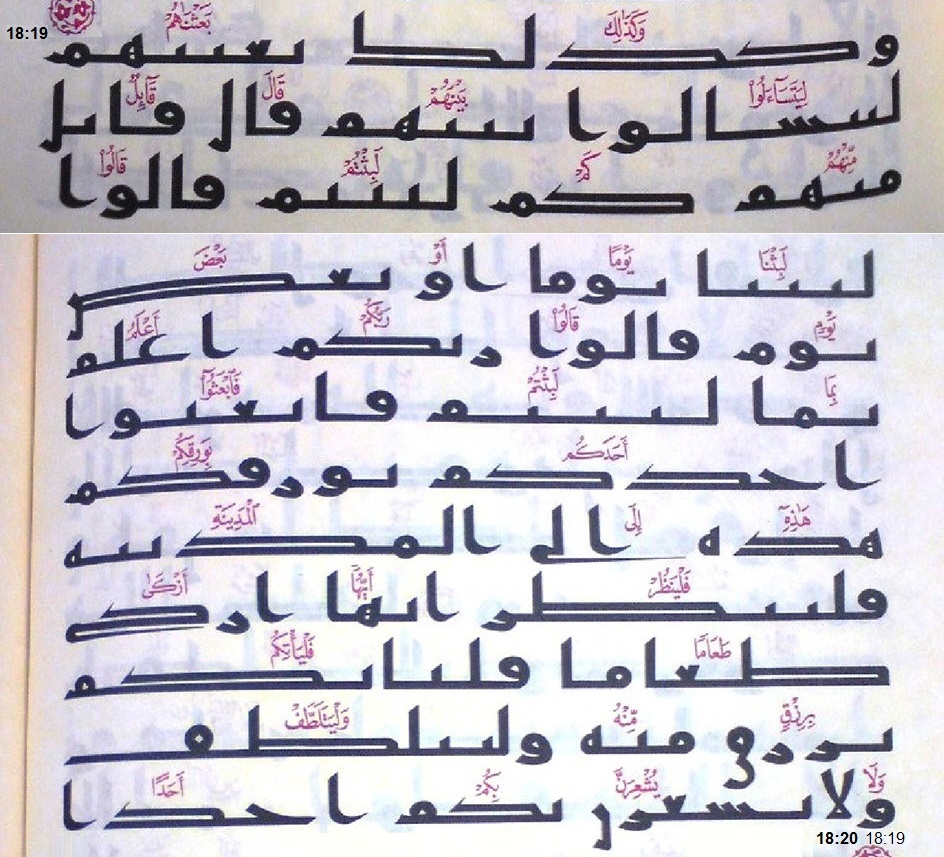 18:19
وَكَذَٰلِكَ بَعَثْنَٰهُمْ
وكذلك بعثنهم
لِيَتَسَآءَلُوا۟ بَيْنَهُمْ قَالَ قَآئِلٌ
ليتسالوا بينهم قال قايل
مِّنْهُمْ كَمْ لَبِثْتُمْ قَالُوا۟
منهم كم لبثتم قالوا
لَبِثْنَا يَوْمًا أَوْ بَعْضَ
لبثنا يوما او بعض
يَوْمٍ قَالُوا۟ رَبُّكُمْ أَعْلَمُ
يوم قالوا ربكم اعلم
بِمَا لَبِثْتُمْ فَٱبْعَثُوٓا۟
بما لبثتم فابعثوا
أَحَدَكُم بِوَرِقِكُمْ
احدكم بورقكم
هَٰذِهِۦٓ إِلَى ٱلْمَدِينَةِ
هذه الى المدينة
فَلْيَنظُرْ أَيُّهَآ أَزْكَىٰ
فلينظر ايها ازكى
طَعَامًا فَلْيَأْتِكُم
طعاما فلياتكم
بِرِزْقٍ مِّنْهُ وَلْيَتَلَطَّفْ
برزق منه وليتلطف
وَلَا يُشْعِرَنَّ بِكُمْ أَحَدًا
ولا يشعرن بكم احدا
18:20 18:19